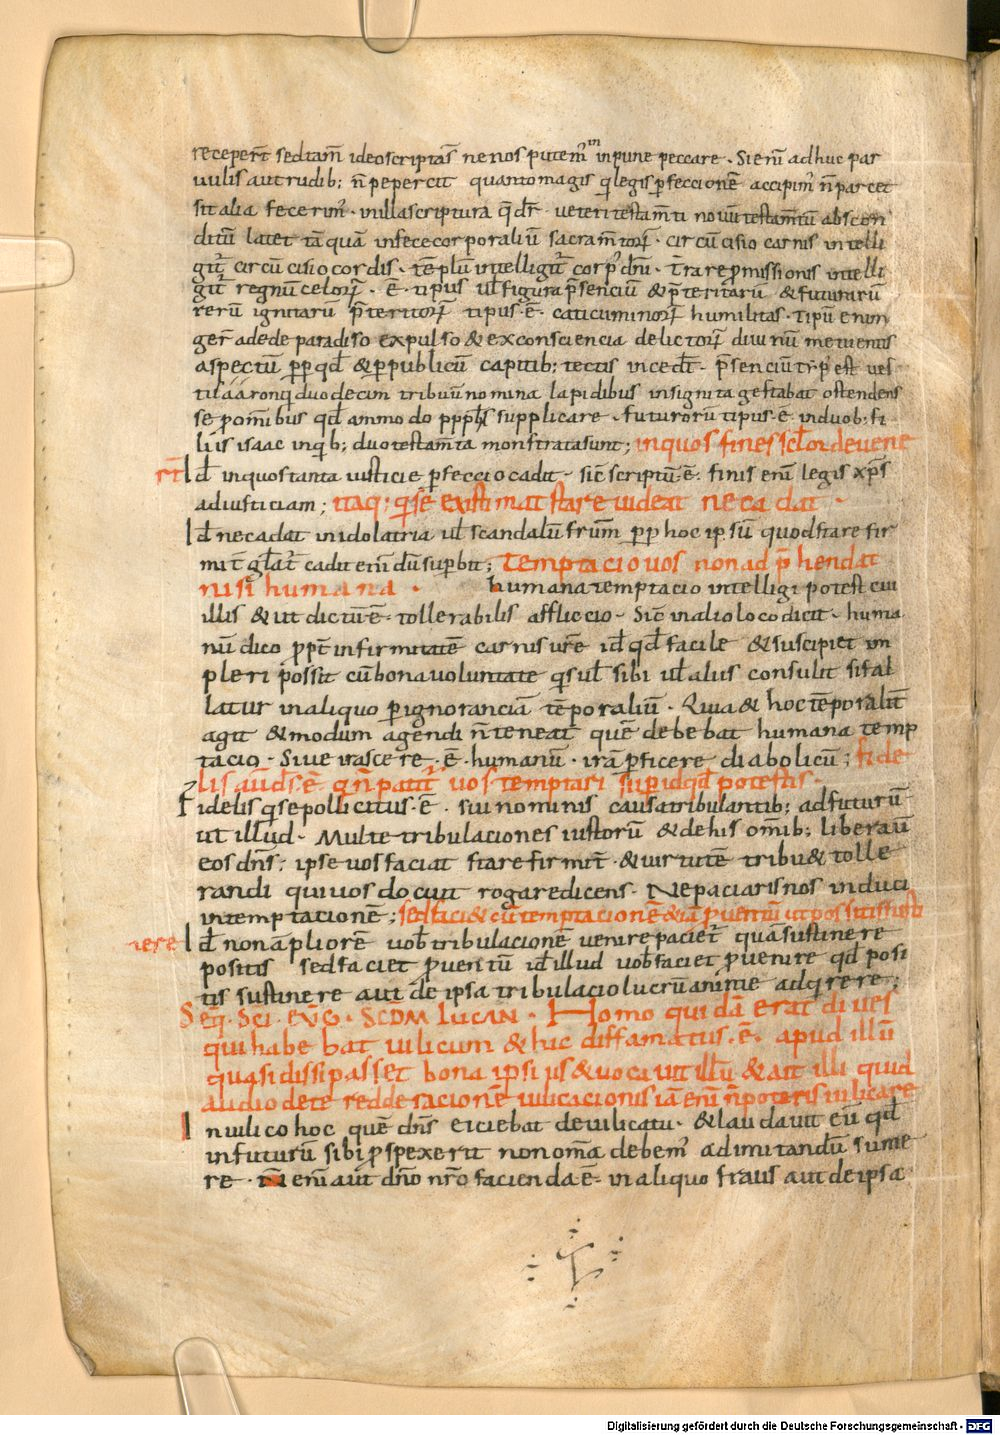 recepert̄ sed tam̄ ideo scriptas̄ ne nos putem' inpune peccare · Si eni ad huc par
uulis aut rudib; n̄ pepercit quanto magis q legis p̱feccionē accipim' n̄ parcet
si talia fecerim' · in illa scriptura q̄ dr̄ · ueteri testam̄ti nouū testam̄tū abscon
ditū latet tāquā in fece corporaliū sacram̄torꝝ · circūcisio carnis intelli
git̄ circūcisio cordis · tēplū intelligit̄ corp' dn̄i · t̄ra repromissionis intelli
git̄ regnū celorꝝ · ē · tipus ul̄ figura p̄senciū & p̄teritarū & futurarū
rerū ignitarū p̄teritorꝝ tipus · ē · caticuminorꝝ humilitas · Tipū enim
ger̄ adede paradiso expulso & ex consciencia delictorꝝ diuinū metuentis
aspectū ꝑp qd̄ & ꝑ publicū capitib; tectis incedt̄ · p̄senciū tip' est ues
tis aaron q duodecim tribuū nomina lapidibus insignita gestabat ostendens
se pomibus qd̄ ammodo p pplīs supplicare · futurorū tipus · ē · in duob; fi
liis isaac in qb; duo testam̄ta monstrata sunt; in quos fines scl̄or deuene
rt̄
Id̄ in quos tanta iusticie p̱feccio cadit · sic̄ scriptū · ē · finis eni legis xp̄s
ad iusticiam; itaq; q se existimat stare uideat ne cadat ·
Id̄ ne cadat in idolatria ul̄ scandalū frūm ꝑp hoc ipsū quod stare fir
mit̄ gl̄at̄ cadit eni dū supbit; Temptacio uos non adp̄hendat
nisi humana · humana temptacio intelligi potest ciu
illis & ut dictū ē · tollerabilis affliccio · Sic̄ in alio loco dicit · huma
nū dico ppt̄ infirmitatē carnis ur̄e id̄ qd̄ facile & suscipiet im
pleri possit cū bona uoluntate q sul̄ sibi ul̄ alus consulit si fal
latur in aliquo p ignoranciā tēporaliū · Quia & hoc tēporalit̄
agit & modum agendi n̄ teneat quē debebat humana temp
tacio · Siue irascere · ē · humanū · irā pficere diabolicū; fide
lis aut̄ ds̄ · ē · q n̄ patit̄ uos temptari supra id qd̄ potestis ·
Fidelis q se pollicitus · ē · sui nominis causa tribulantib; ad futurū
ut illud · Multe tribulaciones iustorū & de his om̄ib; liberauī
eos dn̄s; ipse uos faciat stare firmit̄ · & uirtutē tribu& tolle
randi qui uos docuit rogare dicens · Ne paciaris nos induci
in temptacionē; sed faci& cū temptacionē & iā pūentū ut possitis susti
nere
Id̄ non apliorē uob̄ tribulacionē uenire paciet̄ quā sustinere
possitis sed faciet pūentū id̄ illud uob̄ faciet puenire qd̄ posi
tis sustinere aut de ipsa tribulacio lucrū animie adqrere;
Seq̄ · Sc̄i · eūg · Scd̄m Lucan · Homo quidā erat diues
qui habebat uilicum & hic diffamatus · ē · apud illū
quasi dissipasset bona ipsius & uocauit illū & ait illi quid
audio de te redde racionē uilicacionis iā eni n̄ poteris uilicare
In uilico hoc quē dn̄s eiciebat de uilicatu · & laudauit eū qd̄
in futurū sibi pspexerit non om̄a debem' ad imitandū sume
re · eni aut dn̄o nr̄o facienda ē · in aliquo fraus aut de ipsa